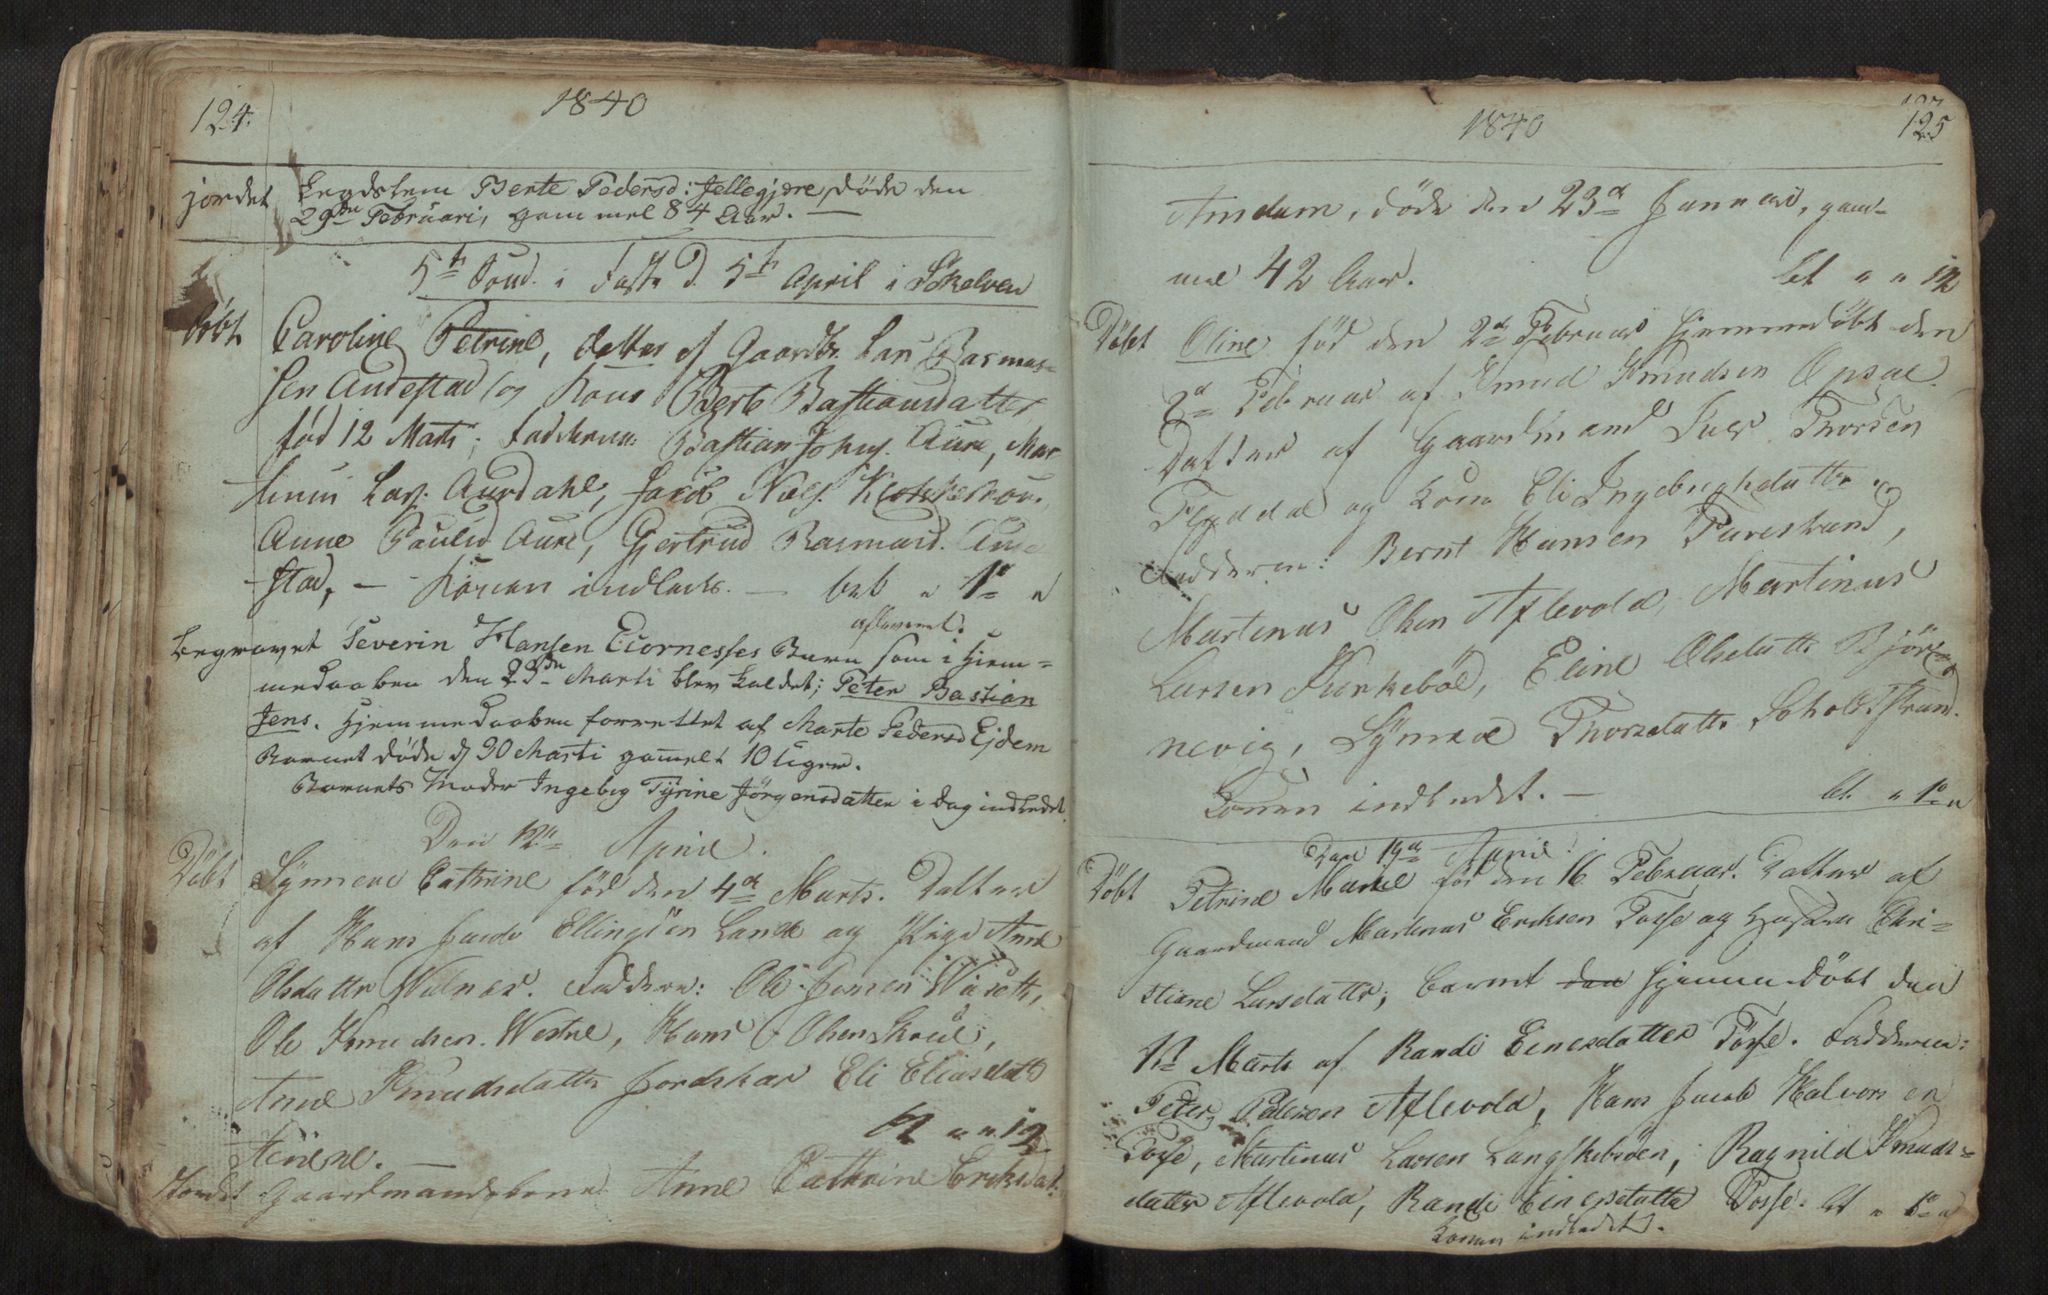 124. 1840
jordet Legdslem Berte Pedersd: Jellegjere, døde den
29de Februari, gammel 84 Aar. —
5te Sønd. i Faste d. 5te April i Skelven
Døbt Caroline Petrine, datter af Gaardbr. Lars Rasmus-
sen Andestad og Kone Berte Bastiansdatter
fød 12 Marts; Fadderne: Bastian Johns. Aure, Mar-
thinus Lars. Aurdahl, Jacob Niels. Klokkerhoug,
Anne Paulsd Aure, Gjertrud Rasmusd. Ande
stad, — Konen indledt. — bet " 1 "
afleveret.
Begravet Severin Hansen Eiornesses Barn som i Hjem-
medaaben den 23de Marti blev kaldet; Peter Bastian
Jens. Hjemmedaaben forrettet af Marte Pedersd Ejdem
Barnet døde d 30 Marti gamelt 10 Uger.
Barnets Moder Ingebg Tyrine Jørgensdatter i dag indledet.
Den 12te April.
Døbt Synneve Cathrine fød den 4de Marts. Datter
af Hans Jacob Ellingsen Lande og Pige Ane
Olsdatter Walnes. Faddere: Ole Jensen
Ole Knudsen Westre, Hans Olsen
Anne Knudsdatter Eli Eliasdatt
bt " " 12
—
Jordet Gaardmandskone Anne Cathrine Eriksdat:
1840 125
Amdam, døde den 23de Januar, gam-
mel 42 Aar. bt " " 12
Døbt Oline fød den 2de Februar hjemmedøbt den
2de Februar af Knud Knudsen Opsal.
Datter af Gaardmand Iver Thorsen
Flydal og Kone Eli Ingebrigtsdatter.
Fadderne: Bernt Hansen Furestrand,
Martinus Olsen Aflevold, Martinus
Larsen Kurkebøl, Eline Olsdatter Bjør-
nevig, Synneve Thorsdatter Scholtsstrand.
Konen indledet. — bt. " 1 "
Den 19de April.
Døbt Petrine Marie fød den 16 Februar. Datter af
Gaardmand Martinus Eriksen Tosse og Hustru Chri-
stiane Larsdatter; Barnet den hjemmedøbt den
Marts af Randi Einersdatter Tosse. Fadderne:
Peter Pedersen Aflevold, Hans Jacob Halvorsen
Tosse, Martinus Larsen Langskibsøen, Ragnild Knuds-
datter Aflevold, Randi Einersdatter Tosse. bt " 1 "
Konen indledet.